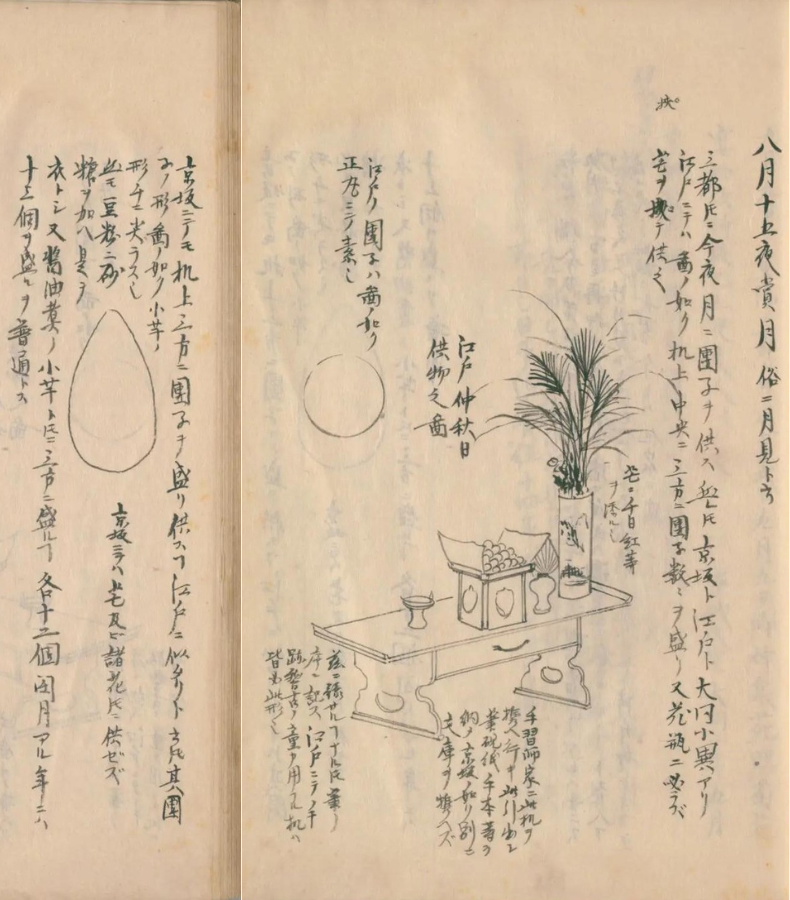 八月十五夜賞月 俗ニ月見ト云
三都𪜈ニ今夜月ニ團子ヲ供ス 然レ𪜈京坂ト江戸ト大同小異アリ
江戸ニテハ圖ノ如ク机上中央ニ三方ニ團子数々ヲ盛リ又花瓶ニ必ラズ
芒ヲ挟テ供之
挟
芒ニ千日紅等
ヲ添ルモ
江戸仲秋日
供物之圖
江戸ノ團子ハ圖ノ如ク
正丸ニテ素也
手習師家ニ此机ヲ
携ヘ行キ此引出ニ
筆硯紙手本等ヲ
納ム京坂ノ如ク別ニ
文庫ヲ携ヘズ
序ニ記ス江戸ニテノ手
跡稽古ノ童ノ用フル机ハ
皆如此形也
京坂ニテモ机上三方ニ團子ヲ盛リ供スヿ江戸ニ似タリト云𪜈其團
子ノ形圖ノ如ク小芋ノ
形チニ尖ラス也
然モ豆粉ニ砂
糖ヲ加ヘ是ヲ
衣トシ又醤油煮ノ小芋ト𪜈ニ三方ニ盛ルヿ各十二個閏月アル年ニハ
十三個ヲ盛ルヲ普通トス
京坂ニテハ芒及ビ諸花𪜈ニ供セズ